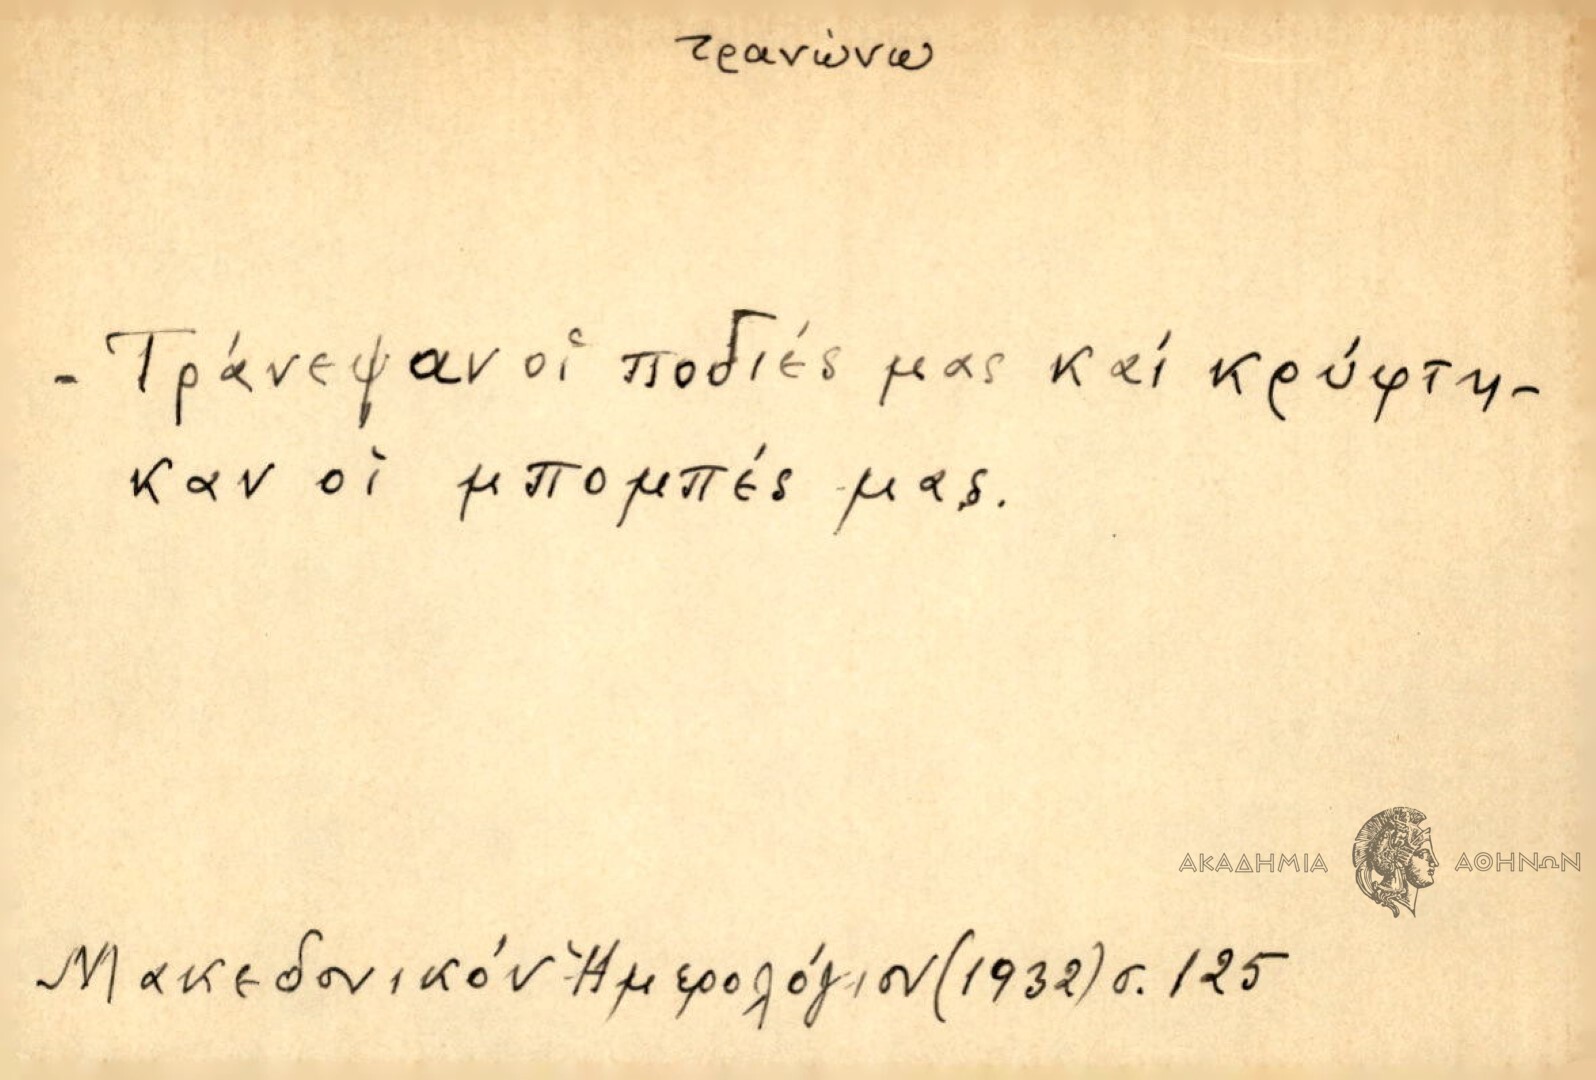 τρανώνω
- Τράνεψαν οἱ ποδιές μας καί κρύφτη-
καν οἱ μπομπές μας.
ΑΚΑΔΗΜΙΑ ΑΘΗΝΩΝ
Μακεδονικόν Ἡμερολόγιον (1932) σ. 125